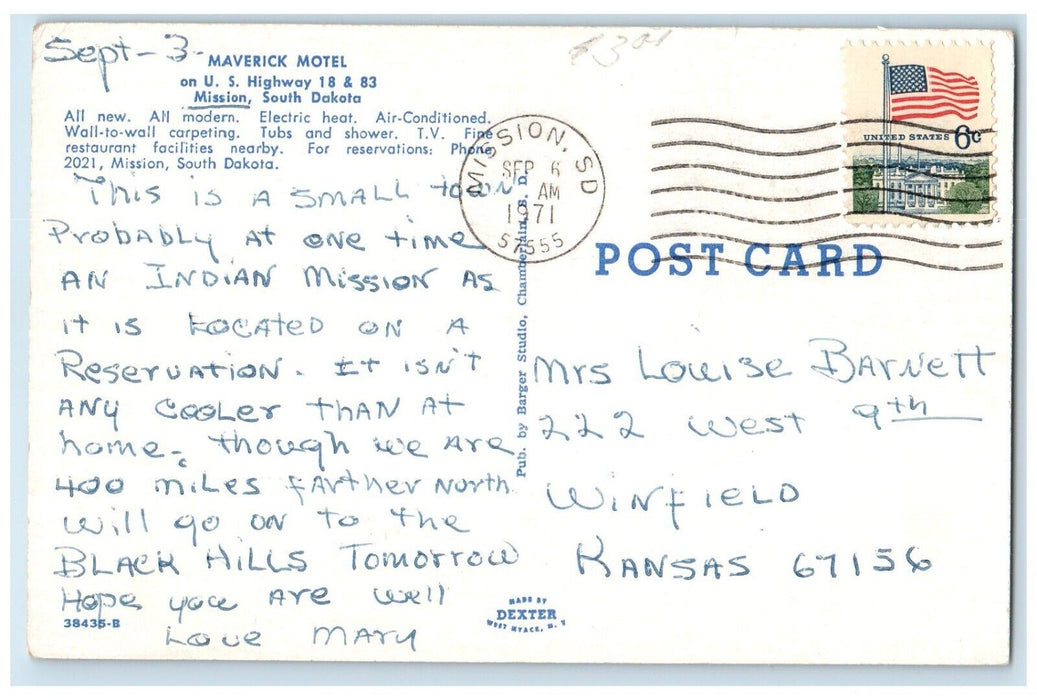 Sept-3-
MAVERICK MOTEL
on U. S. Highway 18 & 83
Mission, South Dakota
All new. All modern. Electric heat. Air-Conditioned.
Wall-to-wall carpeting. Tubs and shower. T.V. Fine
restaurant facilities nearby. For reservations: Phone
2021, Mission, South Dakota.
THIS IS A SMALL town
Probably AT ONE time
AN INDIAN MISSION AS
it is LOCATED ON A
RESERVATION. It isn't
ANy COOLER thAN At
home- though we ARE
400 miles fARther North
will go on to the
BLACK HILLS Tomorrow
Hope you ARE well
Love MARy
38435-B
MISSION, SD
SEP 6
AM
1971
57555
UNITED STATES 6c
POST CARD
Pub. by Barger Studio, Chamberlain, S. D.
Mrs Louise BARNett
222 West 9th
WINfIELD
KANSAS 67156
MADE BY
DEXTER
WEST NYACK, N. Y